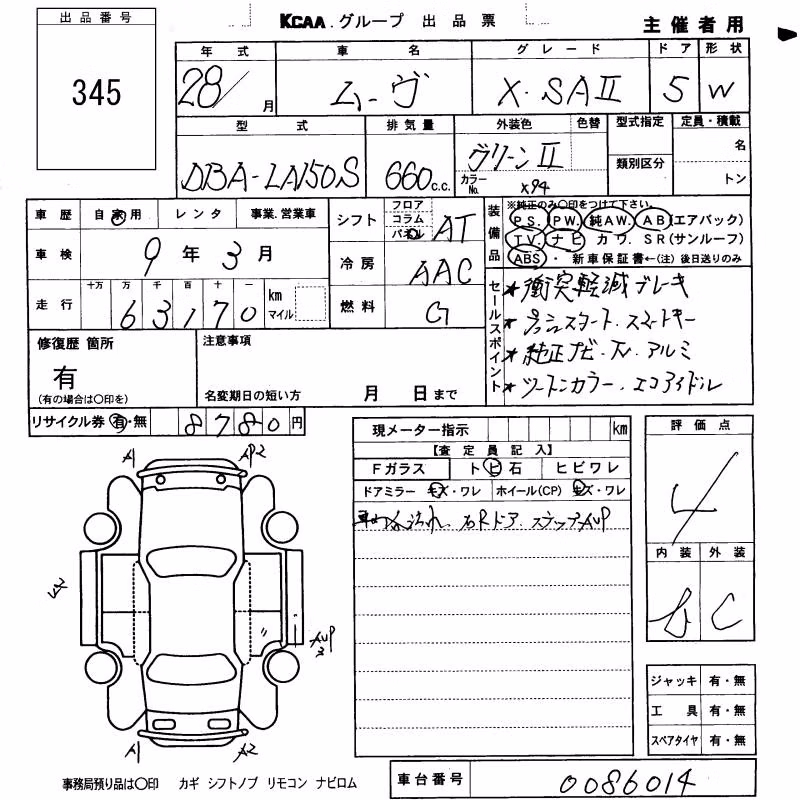 出品番号
345
KCAA.グループ 出品票
主催者用
年式 車名 グレード ドア 形状
28/ 月 ムーヴ X・SAII 5 W
型式 排気量 外装色 色替 型式指定 定員・積載
DBA-LA150S 660c.c. グリーンII
カラーNo. X94
類別区分
名
トン
車歴 自家用 レンタ 事業.営業車
車検 9年3月
走行 十万 万 千 百 十 一
63170 km マイル
シフト フロア コラム パネル AT
冷房 AAC
燃料 G
装備品 ※純正のみ○印をつけて下さい。
PS. PW. 純AW. AB(エアバック)
TV. ナビ カワ. SR(サンルーフ)
ABS・ 新車保証書←(注)後日送りのみ
セールスポイント
★衝突軽減ブレーキ
★プッシュスタート.スマートキー
★純正ナビ.TV.アルミ
★ツートンカラー.エコアイドル
修復歴 箇所
有
(有の場合は○印を)
注意事項
名変期日の短い方 月 日まで
リサイクル券 有・無 8780円
現メーター指示 km
【査定員記入】
Fガラス トビ石 ヒビワレ
ドアミラー キズ・ワレ ホイール(CP) キズ・ワレ
右Rドア.ステップAUP
評価点
4
内装 外装
B C
A1 AP2
AUP
3
A1 A2
ジャッキ 有・無
工具 有・無
スペアタイヤ 有・無
事務局預り品は○印 カギ シフトノブ リモコン ナビロム
車台番号 0086014